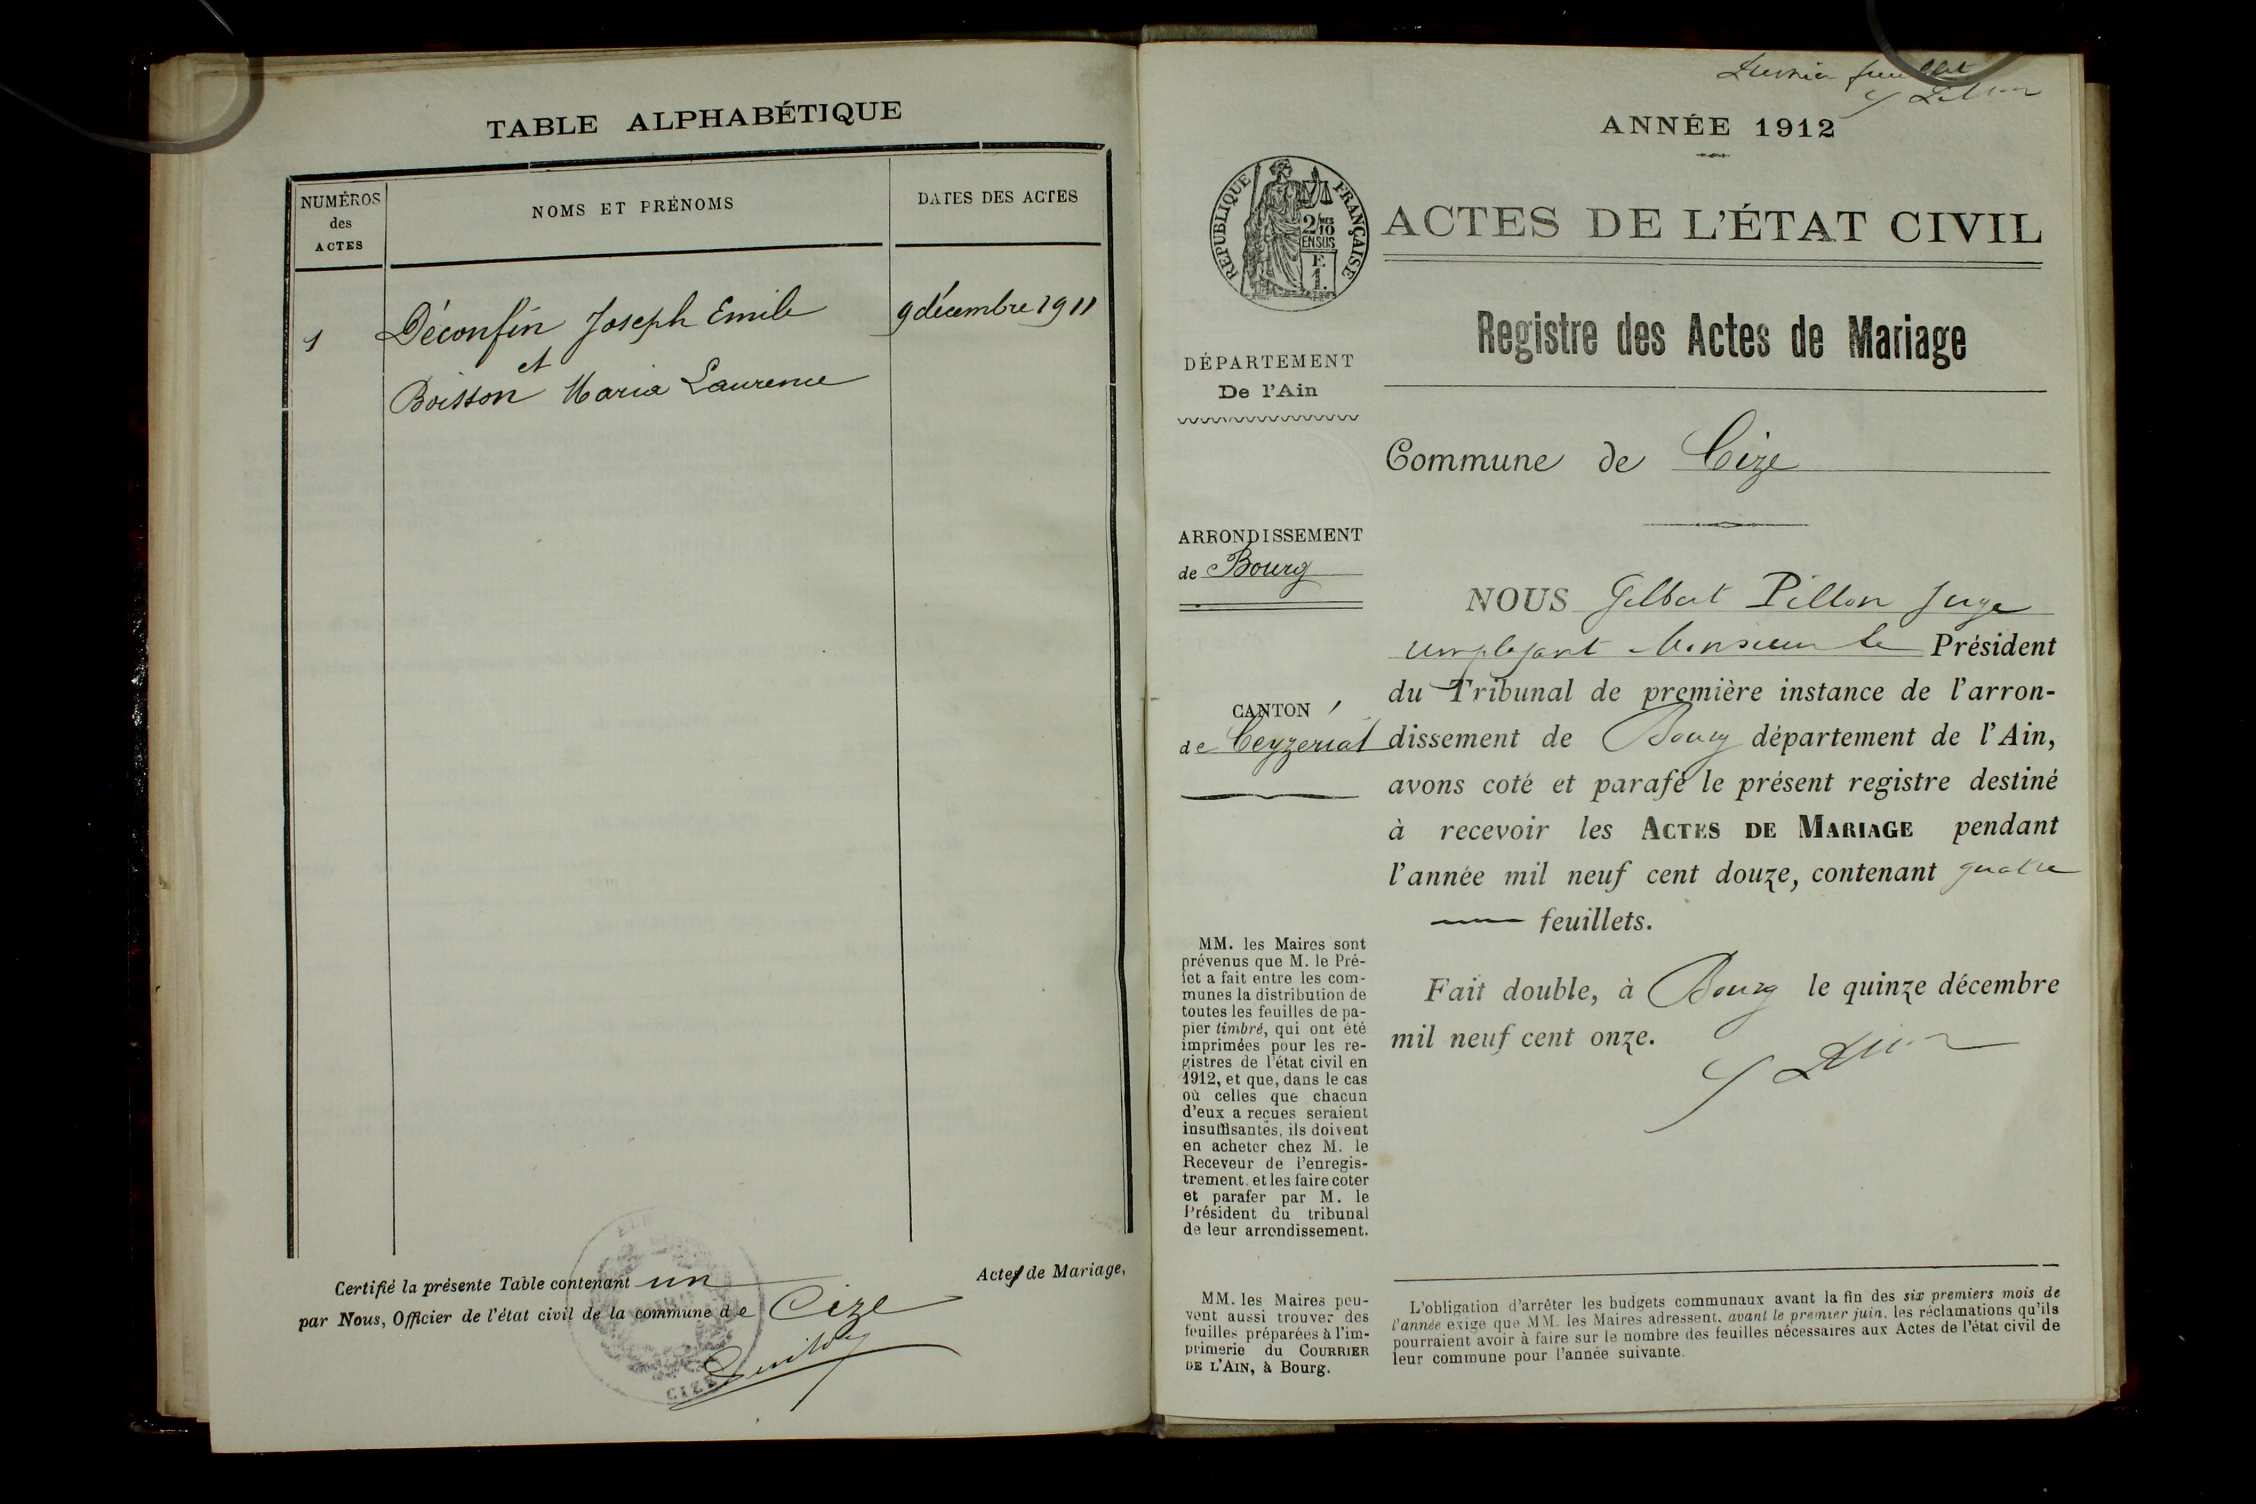 TABLE ALPHABÉTIQUE
NUMÉROS
des
ACTES
NOMS ET PRÉNOMS
DATES DES ACTES
1
Déconfin Joseph Emile
9 décembre 1911
et
Boisson Maria Laurence
Certifié la présente Table contenant un
Actes de Mariage,
par Nous, Officier de l'état civil de la commune de Cize
CIZE
feuillet
ANNÉE 1912
RÉPUBLIQUE FRANÇAISE
2/10
EN SUS
F.
1.
ACTES DE L'ÉTAT CIVIL
Registre des Actes de Mariage
DÉPARTEMENT
De l'Ain
Commune de Cize
ARRONDISSEMENT
de Bourg
CANTON
de Ceyzeriat
NOUS Gilbert Pillon Juge
remplaçant Monsieur le Président
du Tribunal de première instance de l'arron-
dissement de Bourg département de l'Ain,
avons coté et parafé le présent registre destiné
à recevoir les ACTES DE MARIAGE pendant
l'année mil neuf cent douze, contenant quatre
feuillets.
Fait double, à Bourg le quinze décembre
mil neuf cent onze.
MM. les Maires sont
prévenus que M. le Pré-
fet a fait entre les com-
munes la distribution de
toutes les feuilles de pa-
pier timbré, qui ont été
imprimées pour les re-
gistres de l'état civil en
1912, et que, dans le cas
où celles que chacun
d'eux a reçues seraient
insuffisantes, ils doivent
en acheter chez M. le
Receveur de l'enregis-
trement. et les faire coter
et parafer par M. le
Président du tribunal
de leur arrondissement.
MM. les Maires peu-
vent aussi trouver des
feuilles préparées à l'im-
primerie du COURRIER
DE L'AIN, à Bourg.
L'obligation d'arrêter les budgets communaux avant la fin des six premiers mois de
l'année exige que MM. les Maires adressent, avant le premier juin, les réclamations qu'ils
pourraient avoir à faire sur le nombre des feuilles nécessaires aux Actes de l'état civil de
leur commune pour l'année suivante.